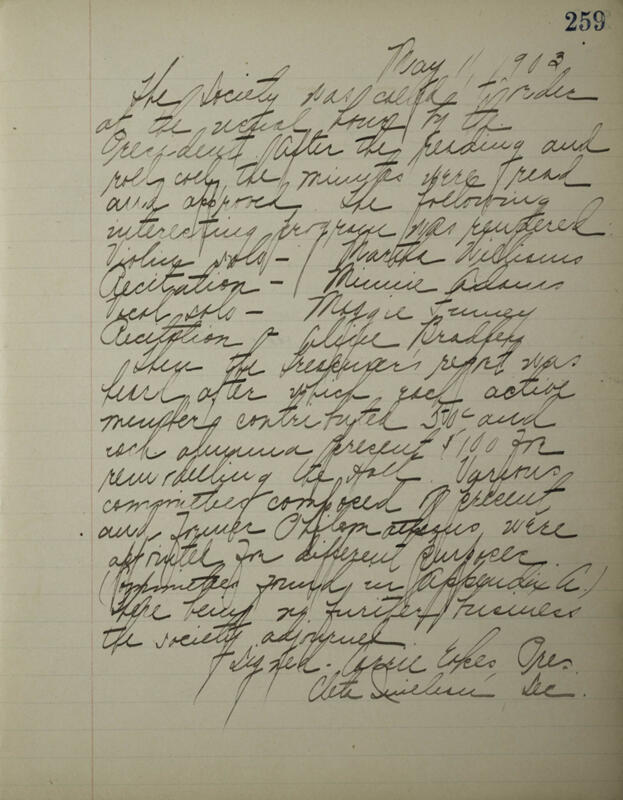 259
May 11, 1903
The Society was called to order
at the usual hour by the
President. After the reading and
roll call the minutes were read
and approved. The following
interesting program was rendered
Violin solo - Martha Williams
Recitation - Minnie Adams
Vocal solo - Maggie
Recitation - Bradley
Then the treasurer's report was
heard after which each active
member contributed 50¢ and
each alumna precent $1.00 for
remodelling the Hall. Various
committees composed of precent
and former Philomatheans were
appointed for different purposes
(Committees found in Appendix A.)
There being no further business
the society adjourned
Signed - Carrie Pres.
Cleta Sec.